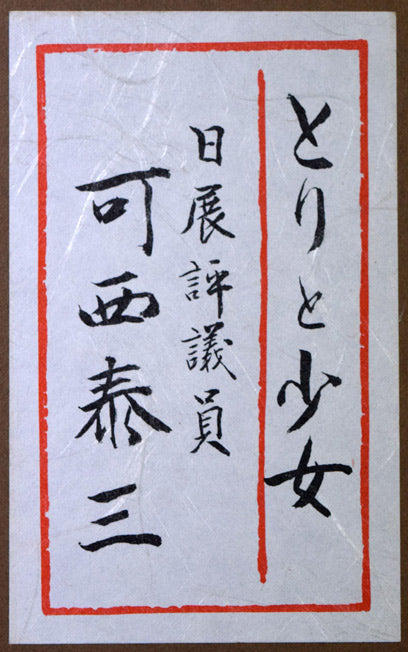 とりと少女
日展評議員
可西泰三